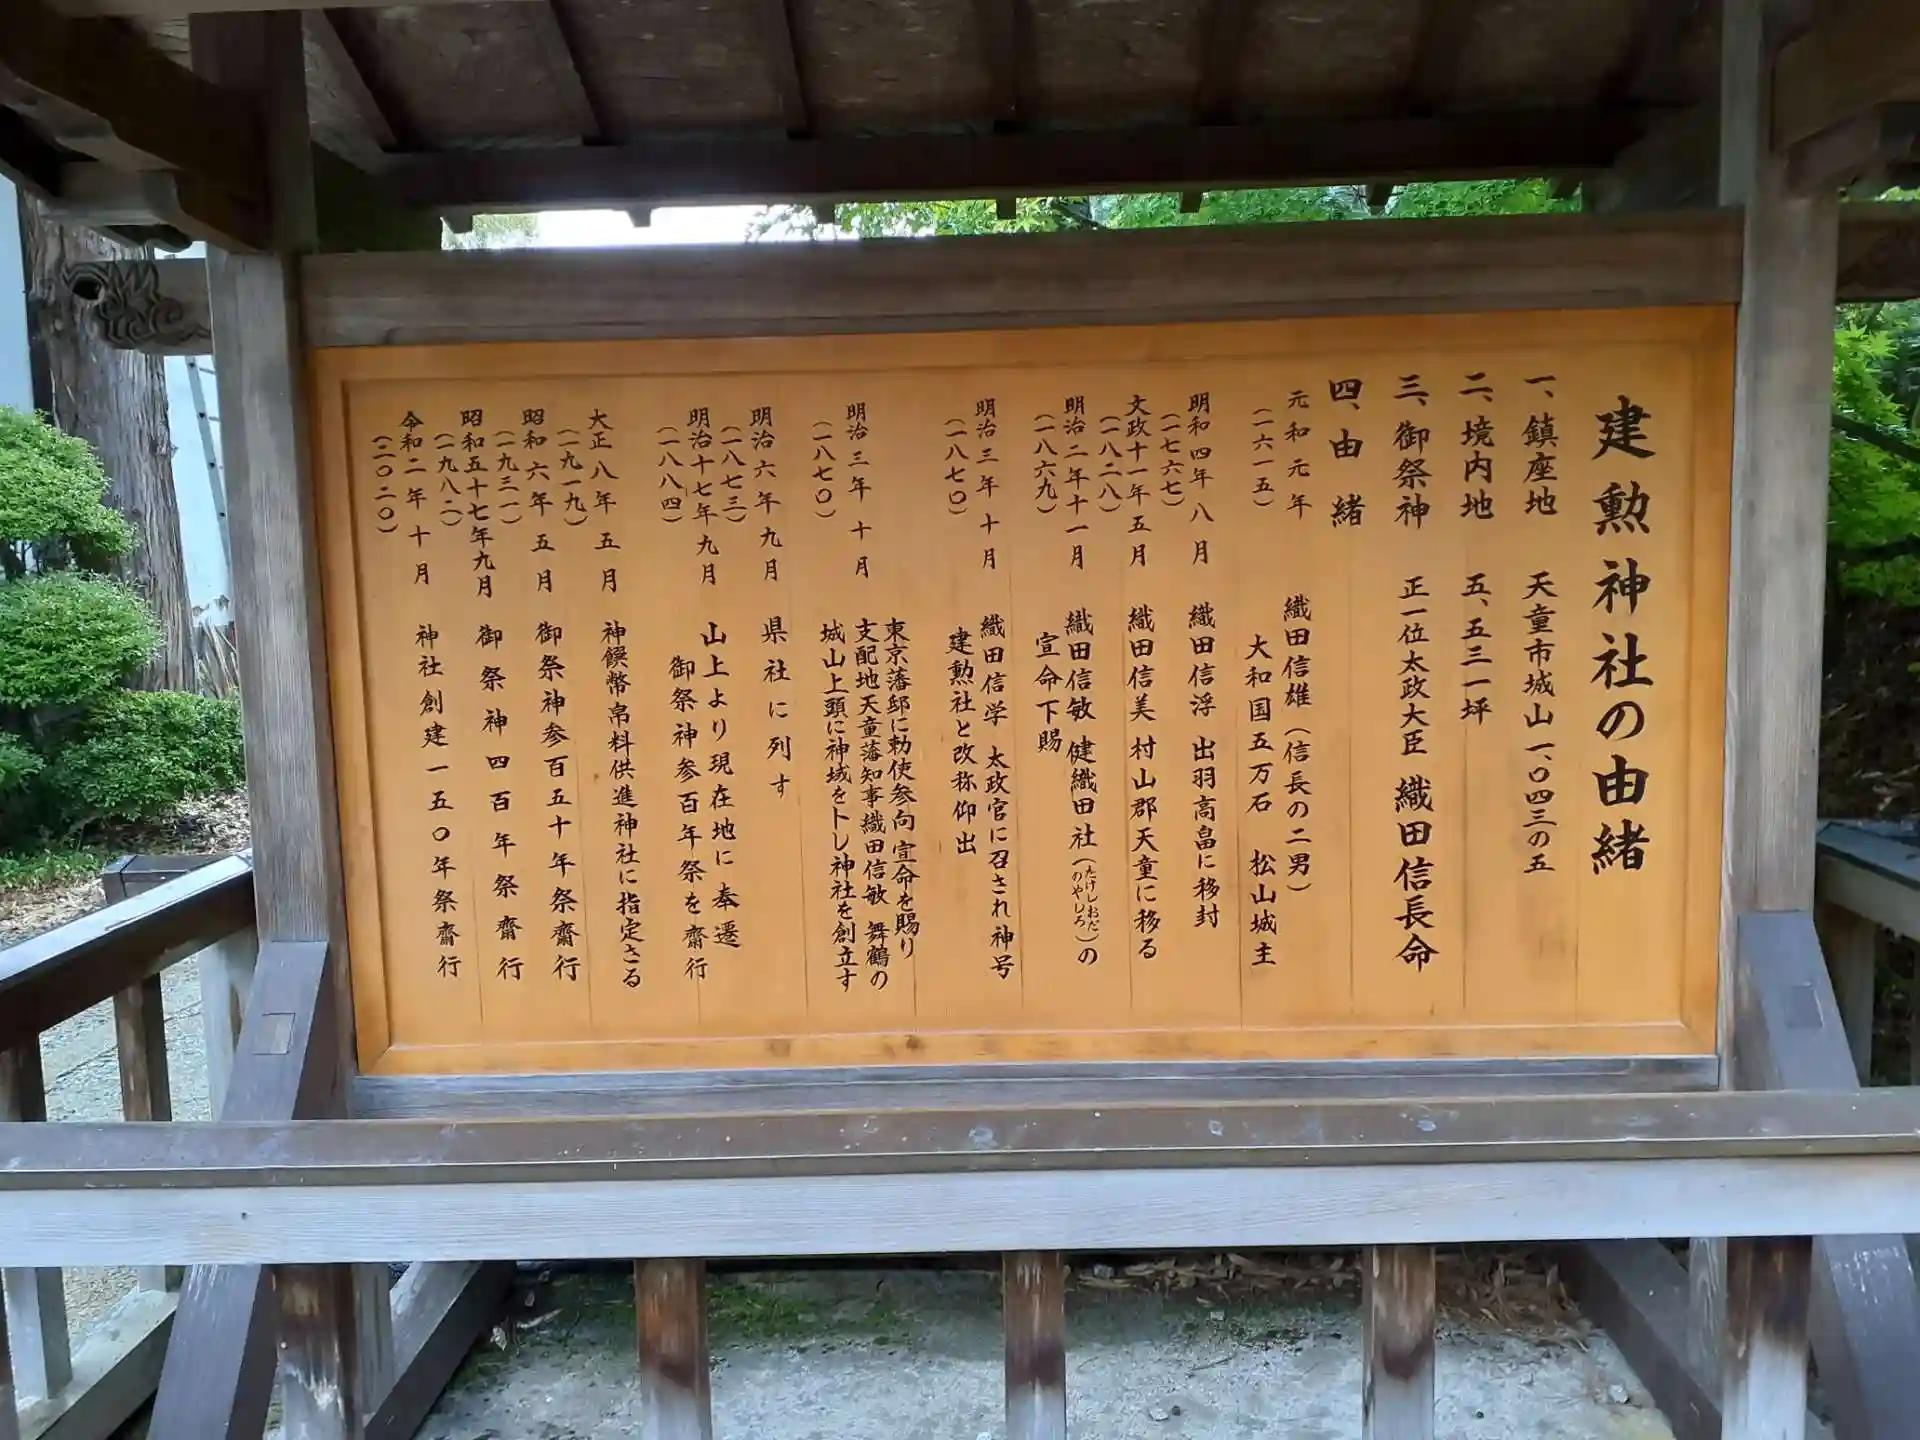 建勲神社の由緒
一、鎮座地 天童市城山一、〇四三の五
二、境内地 五、五三一坪
三、御祭神 正一位太政大臣 織田信長命
四、由緒
元和元年 織田信雄(信長の二男)
(一六一五) 大和国五万石 松山城主
明和四年八月 織田信浮 出羽高畠に移封
(一七六七)
文政十一年五月 織田信美 村山郡天童に移る
(一八二八)
明治二年十一月 織田信敏 健織田社(たけしおだのやしろ)の
(一八六九) 宣命下賜
明治三年十月 織田信学 太政官に召され神号
(一八七〇) 建勲社と改称仰出
明治三年十月 東京藩邸に勅使参向 宣命を賜り
支配地天童藩知事織田信敏 舞鶴の
(一八七〇) 城山上頭に神域を卜し神社を創立す
明治六年九月 県社に列す
(一八七三)
明治十七年九月 山上より現在地に奉遷
(一八八四) 御祭神参百年祭を齋行
大正八年五月 神饌幣帛料供進神社に指定さる
(一九一九)
昭和六年五月 御祭神参百五十年祭齋行
(一九三一)
昭和五十七年九月 御祭神四百年祭齋行
(一九八二)
令和二年十月 神社創建一五〇年祭齋行
(二〇二〇)